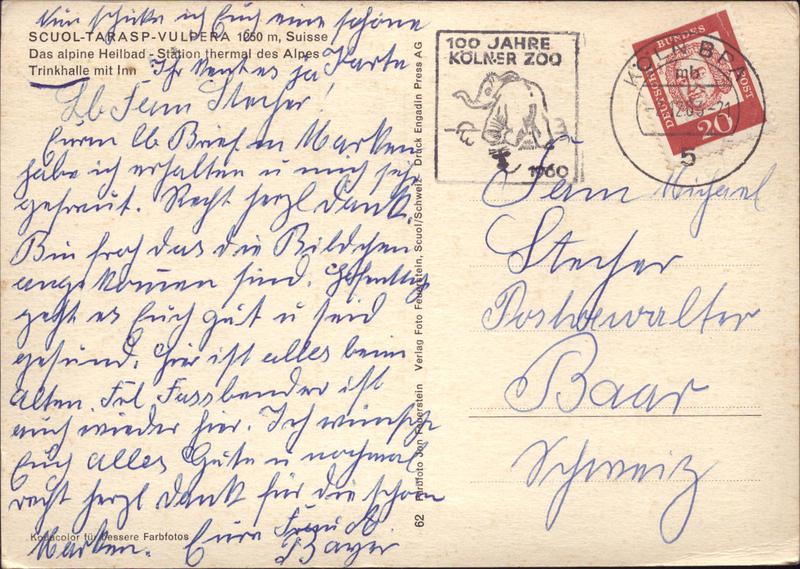 Nun schicke ich Euch eine schöne
SCUOL-TARASP-VULPERA 1250 m, Suisse
Das alpine Heilbad - Station thermal des Alpes
Trinkhalle mit Inn
Ihr kent es ja Karte
Lb Fam Stecher!
Euren lb Brief en Marken
habe ich erhalten u mich sehr
gefreut. Recht herzl Dank.
Bin froh das die Bildchen
angekommen sind. Hoffentlich
geht es Euch gut u seid
gesund. Hier ist alles beim
Alten. Frl Fassbender ist
auch wieder hier. Ich wünsche
Euch alles Gute u nochmal
recht herzl Dank für die schön
Marken. Eure
Bayer
Kodacolor für bessere Farbfotos
62 Farbfoto Jon Feuerstein Verlag Foto Feuerstein, Scuol/Schweiz Druck Engadin Press AG
100 JAHRE
KÖLNER ZOO
1960
KÖLN BPA
mb
5
DEUTSCHE BUNDESPOST
20
Fam Michael
Stecher
Postverwalter
Baar
Schweiz